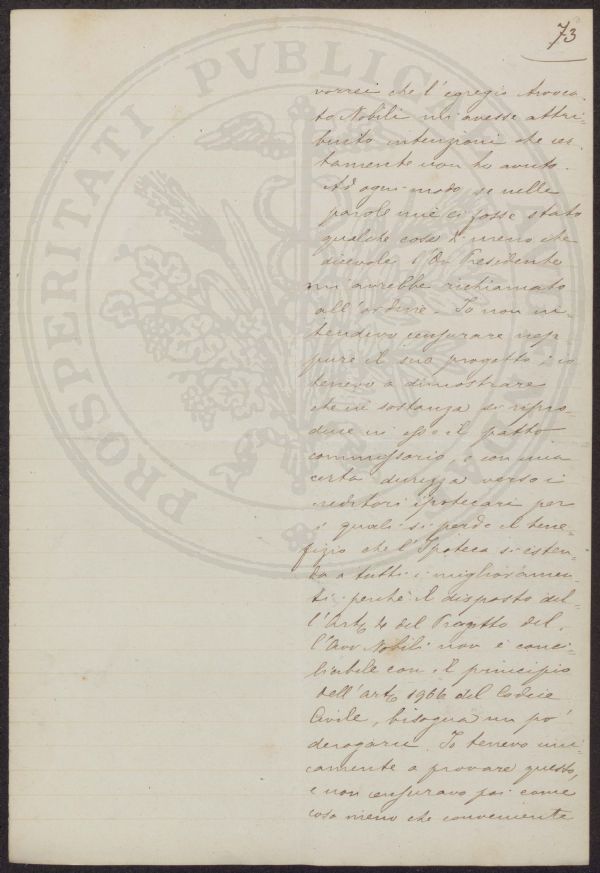 73
vorrei che l'egregio Avvoca-
to Nobili mi avesse attri-
buito intenzioni che cer-
tamente non ho avuto.
Ad ogni modo, se nelle
parole mie ci fosse stato
qualche cosa di meno che
dicevole l'On Presidente
mi avrebbe richiamato
all'ordine. Io non in-
tendevo censurare nep-
pure il suo progetto; io
tenevo a dimostrare
che in sostanza si ripro-
duce in esso il patto
commissorio, e con una
certa durezza verso i
creditori ipotecari per
i quali si perde il bene-
fizio che l'Ipoteca si esten-
da a tutti i miglioramen-
ti perchè il disposto del-
l'Art. 4 del Progetto del-
l'Avv Nobili non è conci-
liabile con il principio
dell'arto 1966 del Codice
Civile, bisogna un pò
derogarvi. Io tenevo uni-
camente a provare questo,
e non censuravo poi come
cosa meno che conveniente
PROSPERITATI PVBLICAE AVGENDAE